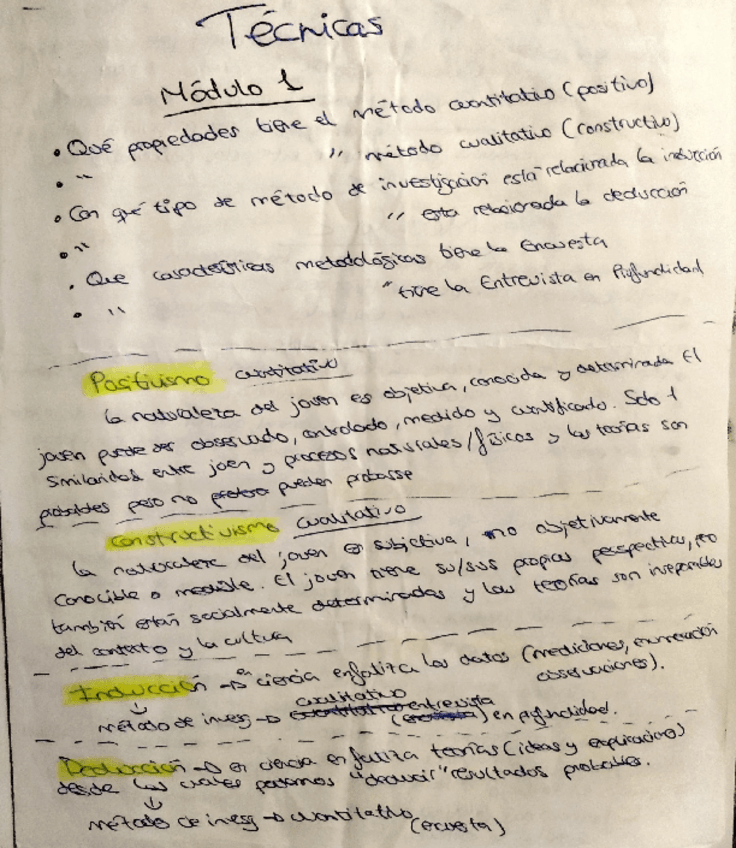 Técnicas
Módulo 1
• Qué propiedades tiene el método cuantitativo (positivo)
• " " método cualitativo (constructivo)
• Con qué tipo de método de investigación está relacionada la inducción
• " " esta relacionada la deducción
• Que características metodológicas tiene la Encuesta
• " " tiene la Entrevista en Profundidad
Positivismo cuantitativo
la naturaleza del joven es objetiva, conocida y determinada El
joven puede ser observado, controlado, medido y cuantificado. Solo 1
Similaridad entre joen y procesos naturales/físicos y las teorías son
probables pero no pueden probarse
Constructivismo cualitativo
la naturaleza del joven es subjetiva, no objetivamente
conocible o medible. El joven tiene su/sus propias perspectivas, pero
también están socialmente determinadas y las teorías son inseparables
del contexto y la cultura
Inducción → en ciencia enfatiza los datos (mediciones, enumeración
observaciones).
método de invesg → cualitativo entrevista en profundidad.
Deducción → en ciencia enfatiza teorías (ideas y explicaciones)
desde las cuales podemos "deducir" resultados probables.
método de invesg → cuantitativo (encuesta)